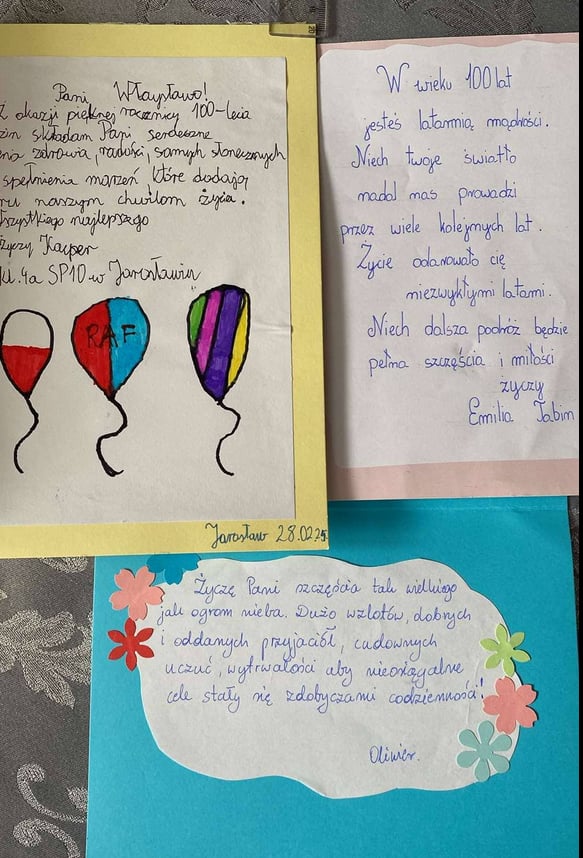 Pani Władysławo!
Z okazji pięknej rocznicy 100-lecia
składam Pani serdeczne
zdrowia, radości, samych słonecznych
spełnienia marzeń które dodają
naszym chwilom życia.
Wszystkiego najlepszego
życzy Kacper
kl. 4a SP10 w Jarosławiu
RAF
Jarosław 28.02.25
W wieku 100 lat
jesteś latarnią mądrości.
Niech twoje światło
nadal nas prowadzi
przez wiele kolejnych lat.
Życie odarowało cię
niezwykłymi latami.
Niech dalsza podróż będzie
pełna szczęścia i miłości
życzy
Emilia
Życzę Pani szczęścia tak wielkiego
jak ogrom nieba. Dużo wzlotów, dobrych
i oddanych przyjaciół, cudownych
uczuć, wytrwałości aby nieosiągalne
cele stały się zdobyczami codzienności!
Oliwier.